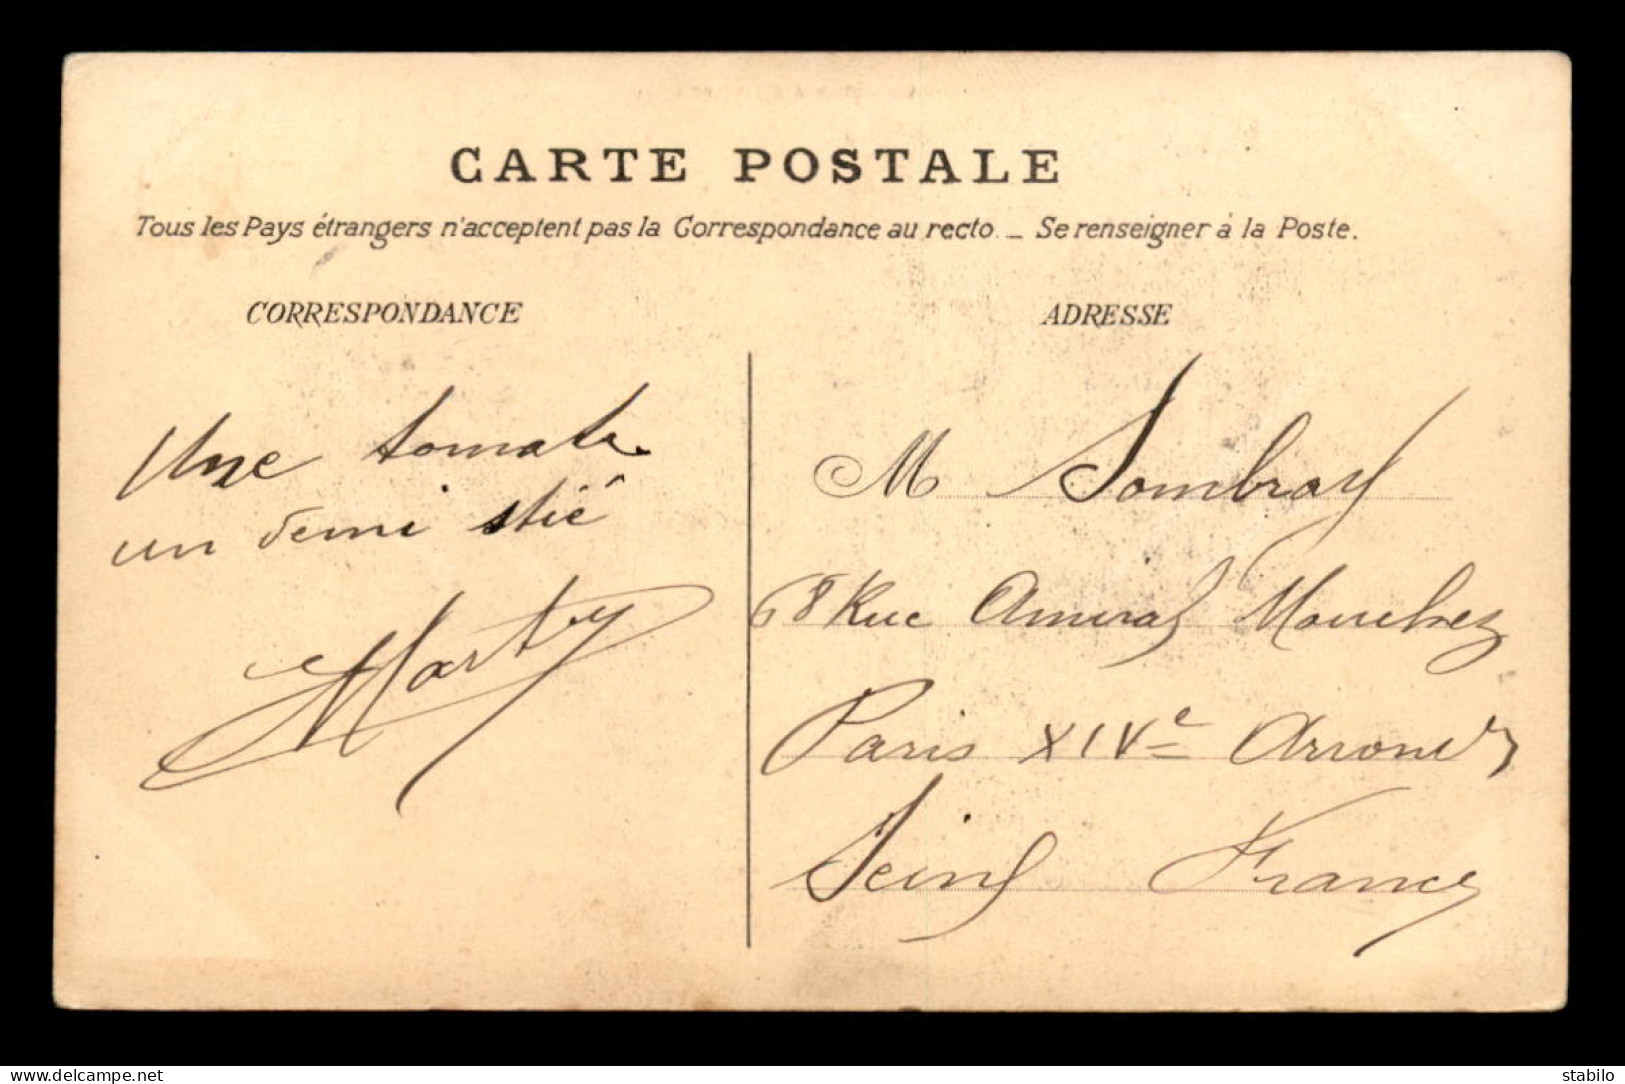 CARTE POSTALE
Tous les Pays étrangers n'acceptent pas la Correspondance au recto. _ Se renseigner à la Poste.
CORRESPONDANCE
Une tomate
un demi stié
Marty
ADRESSE
M Sombray
68 Rue Amiral Mouchez
Paris XIVe Arrond
Seine France
delcampe.net
stabilo